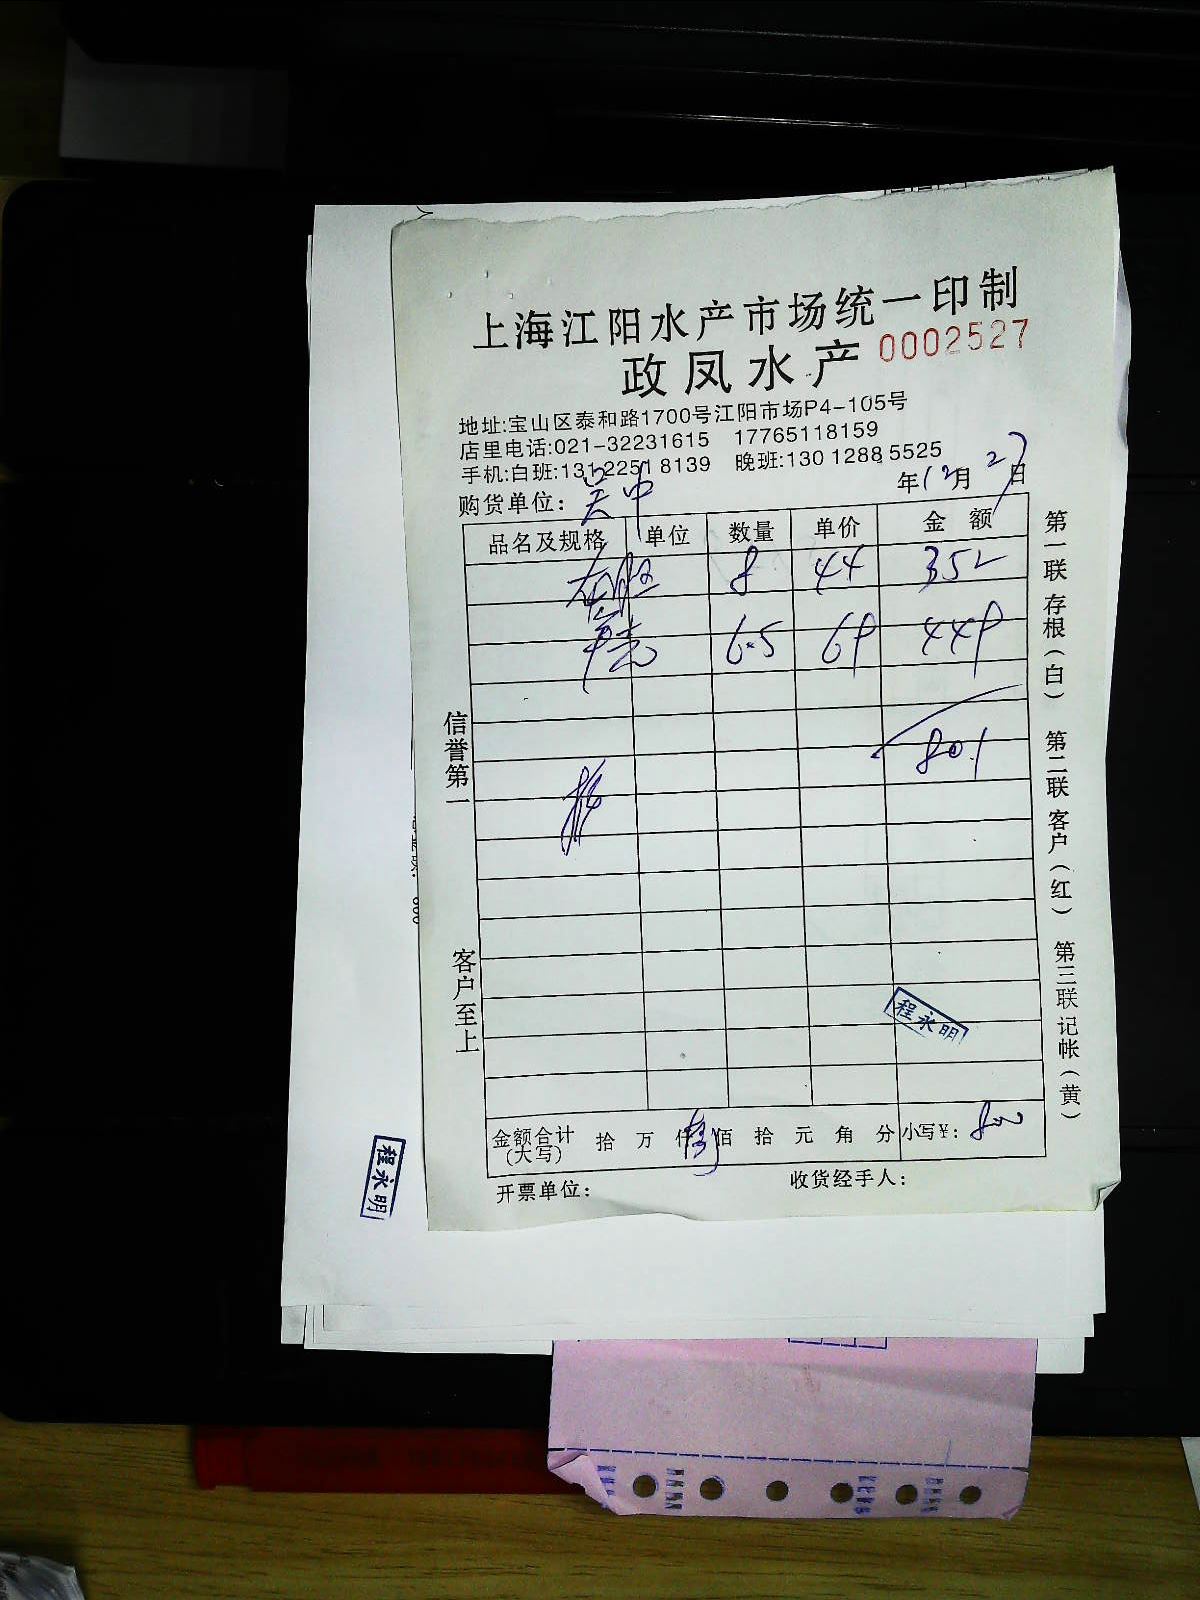 上海江阳水产市场统一印制
政凤水产 0002527
地址:宝山区泰和路1700号江阳市场P4-105号
店里电话:021-32231615 17765118159
手机:白班:131 2251 8139 晚班:130 1288 5525
购货单位: 吴中 年12月27日
品名及规格 单位 数量 单价 金额
8 44 352
6.5 69 449
801
信誉第一
客户至上
第一联 存根(白) 第二联 客户(红) 第三联 记帐(黄)
程永明
金额合计(大写) 拾 万 仟 佰 拾 元 角 分 小写¥: 800
开票单位: 收货经手人:
程永明